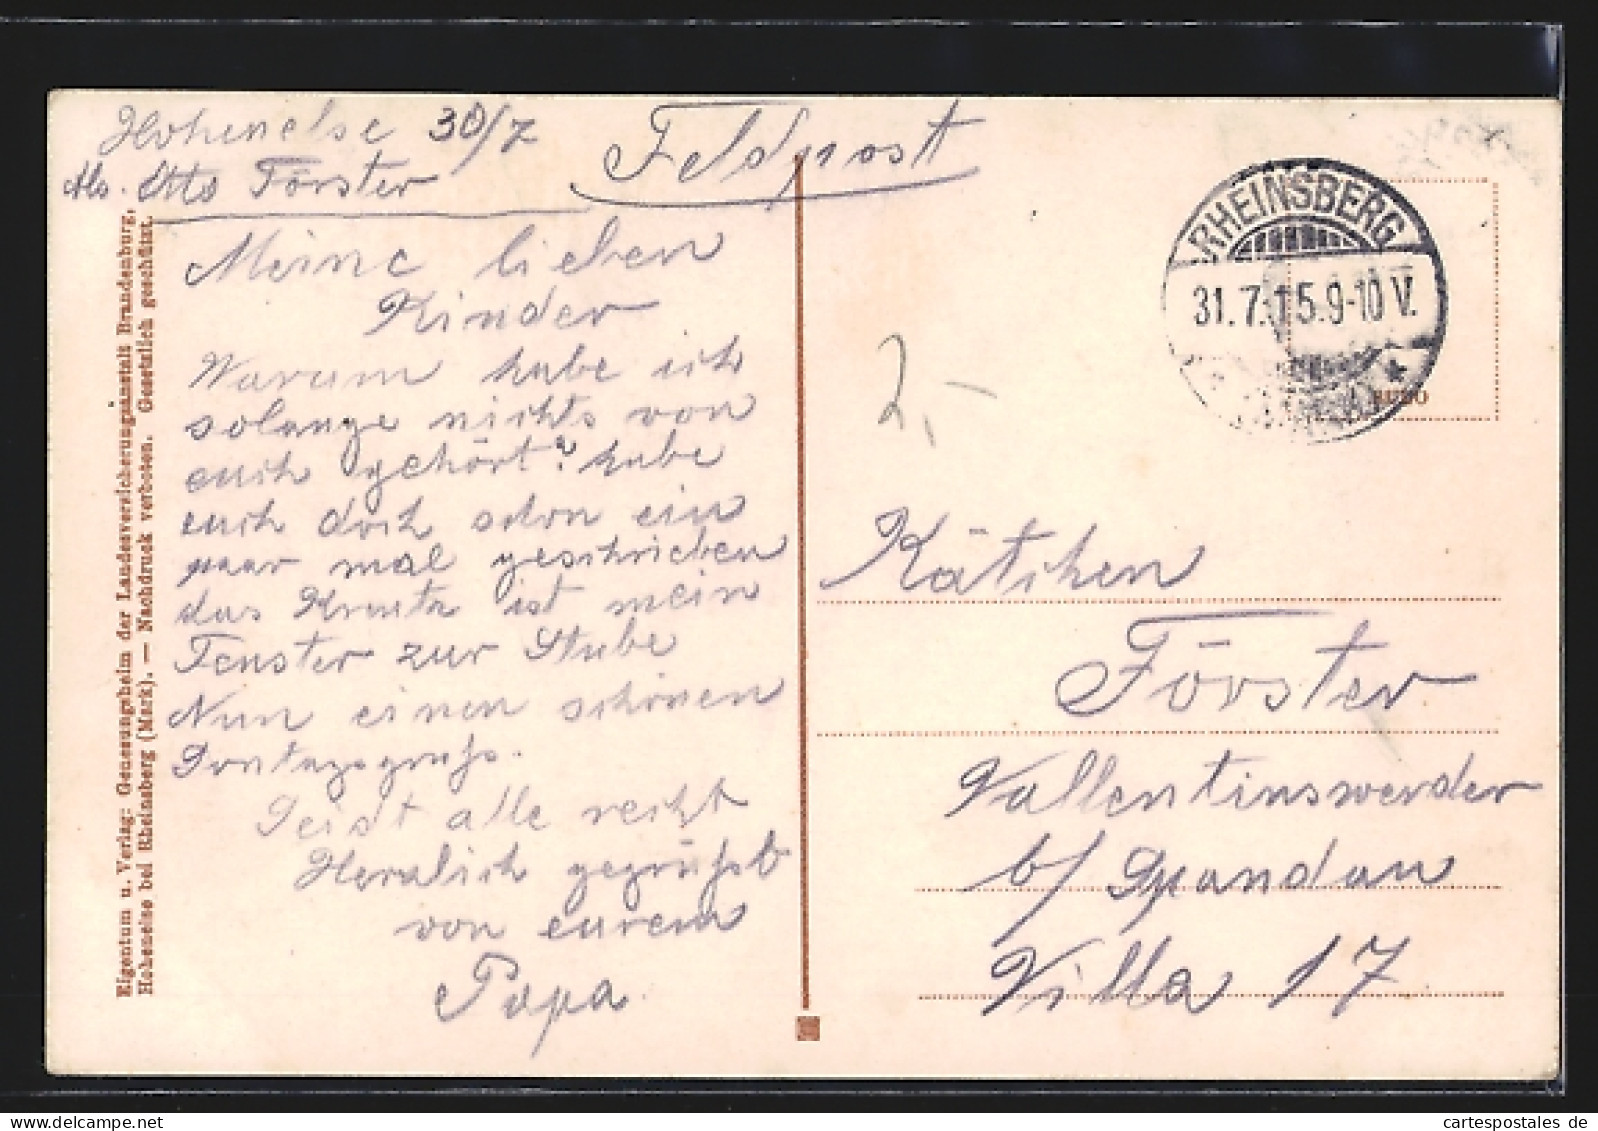 Hohenelse 30/7
Abs. Otto Förster
Feldpost
Meine lieben
Kinder
Warum habe ich
solange nichts von
euch gehört? habe
euch doch schon ein
paar mal geschrieben
das Kreutz ist mein
Fenster zur Stube
Nun einen schönen
Sontagsgruß.
Seidt alle recht
Herzlich gegrüßt
von eurem
Papa
Eigentum u. Verlag: Genesungsheim der Landesversicherungsanstalt Brandenburg,
Hohenelse bei Rheinsberg (Mark). — Nachdruck verboten. Gesetzlich geschützt.
RHEINSBERG
31.7.15.9-10 V.
2,-
Kätchen
Förster
Vallentinswerder
b/ Spandau
Villa 17
cartespostales de